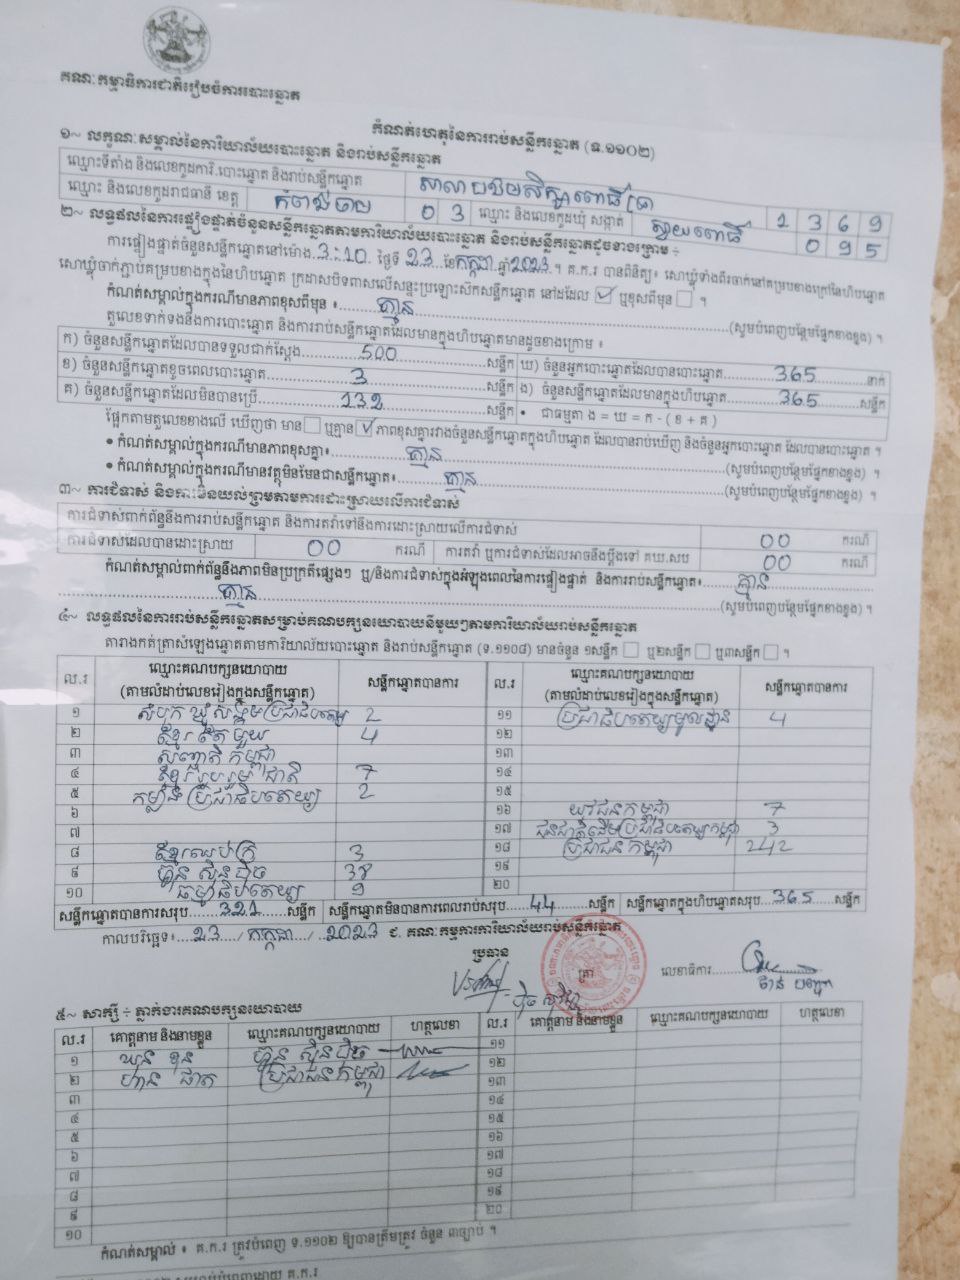 គណៈកម្មាធិការជាតិរៀបចំការបោះឆ្នោត
កំណត់ហេតុនៃការរាប់សន្លឹកឆ្នោត (ទ.១១០២)
១~ លក្ខណៈសម្គាល់នៃការិយាល័យបោះឆ្នោត និងរាប់សន្លឹកឆ្នោត
ឈ្មោះទីតាំង និងលេខកូដការិ.បោះឆ្នោត និងរាប់សន្លឹកឆ្នោត សាលាបឋមសិក្សាពោធិ៍ 1369
ឈ្មោះ និងលេខកូដរាជធានី ខេត្ត កំពង់ចាម 03 ឈ្មោះ និងលេខកូដឃុំ សង្កាត់ ស្វាយពោធិ៍ 095
២~ លទ្ធផលនៃការផ្ទៀងផ្ទាត់ចំនួនសន្លឹកឆ្នោតតាមការិយាល័យបោះឆ្នោត និងរាប់សន្លឹកឆ្នោតដូចខាងក្រោម ÷
ការផ្ទៀងផ្ទាត់ចំនួនសន្លឹកឆ្នោតនៅម៉ោង 3:10 ថ្ងៃទី 23 ខែកក្កដា ឆ្នាំ2023។ គ.ក.រ បានពិនិត្យ៖ សោឃ្លុំទាំងពីរចាក់នៅគម្របខាងក្រៅនៃហិបឆ្នោត
សោឃ្លុំចាក់ភ្ជាប់គម្របខាងក្នុងនៃហិបឆ្នោត ក្រដាសបិទពាសលើសន្ទះប្រឡោះស៊កសន្លឹកឆ្នោត នៅដដែល ✓ ឬខុសពីមុន ។
កំណត់សម្គាល់ក្នុងករណីមានភាពខុសពីមុន ៖ គ្មាន (សូមបំពេញបន្ថែមផ្នែកខាងខ្នង) ។
តួលេខទាក់ទងនឹងការបោះឆ្នោត និងការរាប់សន្លឹកឆ្នោតដែលមានក្នុងហិបឆ្នោតមានដូចខាងក្រោម ៖
ក) ចំនួនសន្លឹកឆ្នោតដែលបានទទួលជាក់ស្តែង 500 សន្លឹក ឃ) ចំនួនអ្នកបោះឆ្នោតដែលបានបោះឆ្នោត 365 នាក់
ខ) ចំនួនសន្លឹកឆ្នោតខូចពេលបោះឆ្នោត 3 សន្លឹក ង) ចំនួនសន្លឹកឆ្នោតដែលមានក្នុងហិបឆ្នោត 365 សន្លឹក
គ) ចំនួនសន្លឹកឆ្នោតដែលមិនបានប្រើ 132 សន្លឹក • ជាធម្មតា ង = ឃ = ក - ( ខ + គ )
ផ្អែកតាមតួលេខខាងលើ ឃើញថា មាន ឬគ្មាន ✓ ភាពខុសគ្នារវាងចំនួនសន្លឹកឆ្នោតក្នុងហិបឆ្នោត ដែលបានរាប់ឃើញ និងចំនួនអ្នកបោះឆ្នោត ដែលបានបោះឆ្នោត ។
• កំណត់សម្គាល់ក្នុងករណីមានភាពខុសគ្នា៖ គ្មាន (សូមបំពេញបន្ថែមផ្នែកខាងខ្នង) ។
• កំណត់សម្គាល់ក្នុងករណីមានវត្ថុមិនមែនជាសន្លឹកឆ្នោត៖ គ្មាន (សូមបំពេញបន្ថែមផ្នែកខាងខ្នង) ។
៣~ ការជំទាស់ និងការមិនយល់ព្រមតាមការដោះស្រាយលើការជំទាស់
ការជំទាស់ពាក់ព័ន្ធនឹងការរាប់សន្លឹកឆ្នោត និងការតវ៉ាទៅនឹងការដោះស្រាយលើការជំទាស់ 00 ករណី
ការជំទាស់ដែលបានដោះស្រាយ 00 ករណី ការតវ៉ា ឬការជំទាស់ដែលអាចនឹងប្តឹងទៅ គឃ.សប 00 ករណី
កំណត់សម្គាល់ពាក់ព័ន្ធនឹងភាពមិនប្រក្រតីផ្សេងៗ ឬ/និងការជំទាស់ក្នុងអំឡុងពេលនៃការផ្ទៀងផ្ទាត់ និងការរាប់សន្លឹកឆ្នោត៖ គ្មាន
គ្មាន (សូមបំពេញបន្ថែមផ្នែកខាងខ្នង) ។
៤~ លទ្ធផលនៃការរាប់សន្លឹកឆ្នោតសម្រាប់គណបក្សនយោបាយនីមួយៗតាមការិយាល័យរាប់សន្លឹកឆ្នោត
តារាងកត់ត្រាសំឡេងឆ្នោតតាមការិយាល័យបោះឆ្នោត និងរាប់សន្លឹកឆ្នោត (ទ.១១០៨) មានចំនួន ១សន្លឹក ឬ២សន្លឹក ឬ៣សន្លឹក ។
ល.រ ឈ្មោះគណបក្សនយោបាយ សន្លឹកឆ្នោតបានការ ល.រ ឈ្មោះគណបក្សនយោបាយ សន្លឹកឆ្នោតបានការ
(តាមលំដាប់លេខរៀងក្នុងសន្លឹកឆ្នោត) (តាមលំដាប់លេខរៀងក្នុងសន្លឹកឆ្នោត)
១ សំបុកឃ្មុំសង្គមប្រជាធិបតេយ្យ 2 ១១ ប្រជាធិបតេយ្យមូលដ្ឋាន 4
២ ខ្មែរតែមួយ 4 ១២
៣ សញ្ជាតិកម្ពុជា ១៣
៤ ខ្មែររួបរួមជាតិ 7 ១៤
៥ កម្លាំងប្រជាធិបតេយ្យ 2 ១៥
៦ ១៦ យុវជនកម្ពុជា 7
៧ ១៧ ជនជាតិដើមប្រជាធិបតេយ្យកម្ពុជា 3
៨ ខ្មែរឈប់ក្រ 3 ១៨ ប្រជាជនកម្ពុជា 242
៩ ហ្វ៊ុនស៊ិនប៉ិច 38 ១៩
១០ ធម្មាធិបតេយ្យ 9 ២០
សន្លឹកឆ្នោតបានការសរុប 321 សន្លឹក សន្លឹកឆ្នោតមិនបានការពេលរាប់សរុប 44 សន្លឹក សន្លឹកឆ្នោតក្នុងហិបឆ្នោតសរុប 365 សន្លឹក
កាលបរិច្ឆេទ៖ 23 / កក្កដា / 2023 ៩. គណៈកម្មការការិយាល័យរាប់សន្លឹកឆ្នោត
ប្រធាន ត្រា លេខាធិការ
៥~ សាក្សី ÷ ភ្នាក់ងារគណបក្សនយោបាយ
ល.រ គោត្តនាម និងនាមខ្លួន ឈ្មោះគណបក្សនយោបាយ ហត្ថលេខា ល.រ គោត្តនាម និងនាមខ្លួន ឈ្មោះគណបក្សនយោបាយ ហត្ថលេខា
១ ហ្វ៊ុនស៊ិនប៉ិច ១១
២ ប្រជាជនកម្ពុជា ១២
៣ ១៣
៤ ១៤
៥ ១៥
៦ ១៦
៧ ១៧
៨ ១៨
៩ ១៩
១០ ២០
កំណត់សម្គាល់ ៖ គ.ក.រ ត្រូវបំពេញ ទ.១១០២ ឱ្យបានត្រឹមត្រូវ ចំនួន ៣ច្បាប់ ។